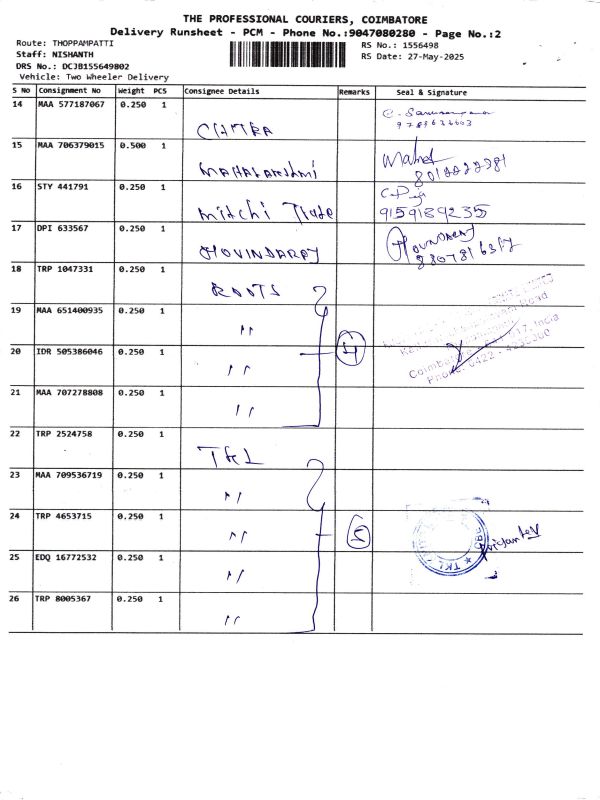 THE PROFESSIONAL COURIERS, COIMBATORE
Delivery Runsheet - PCM - Phone No.:9047080280 - Page No.:2
Route: THOPPAMPATTI
RS No.: 1556498
Staff: NISHANTH
RS Date: 27-May-2025
DRS No.: DCJB155649802
Vehicle: Two Wheeler Delivery
S No Consignment No Weight PCS Consignee Details Remarks Seal & Signature
14 MAA 577187067 0.250 1
CHITRA
15 MAA 706379015 0.500 1
MAHALAKSHMI
16 STY 441791 0.250 1
Mitchi Trade 9159189235
17 DPI 633567 0.250 1
GOVINDARAJ GOVINDARAJ
18 TRP 1047331 0.250 1
ROOTS
19 MAA 651400935 0.250 1
"
20 IDR 505386046 0.250 1
" 4
21 MAA 707278808 0.250 1
"
22 TRP 2524758 0.250 1
TKL
23 MAA 709536719 0.250 1
"
24 TRP 4653715 0.250 1
" 5
TKL
25 EDQ 16772532 0.250 1
"
26 TRP 8005367 0.250 1
"